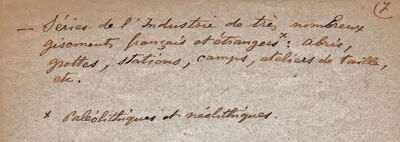 7
— Séries de l'Industrie de très nombreux
gisements français et étrangers x : abris,
grottes, stations, camps, ateliers de taille,
etc.
x Paléolithiques et néolithiques.